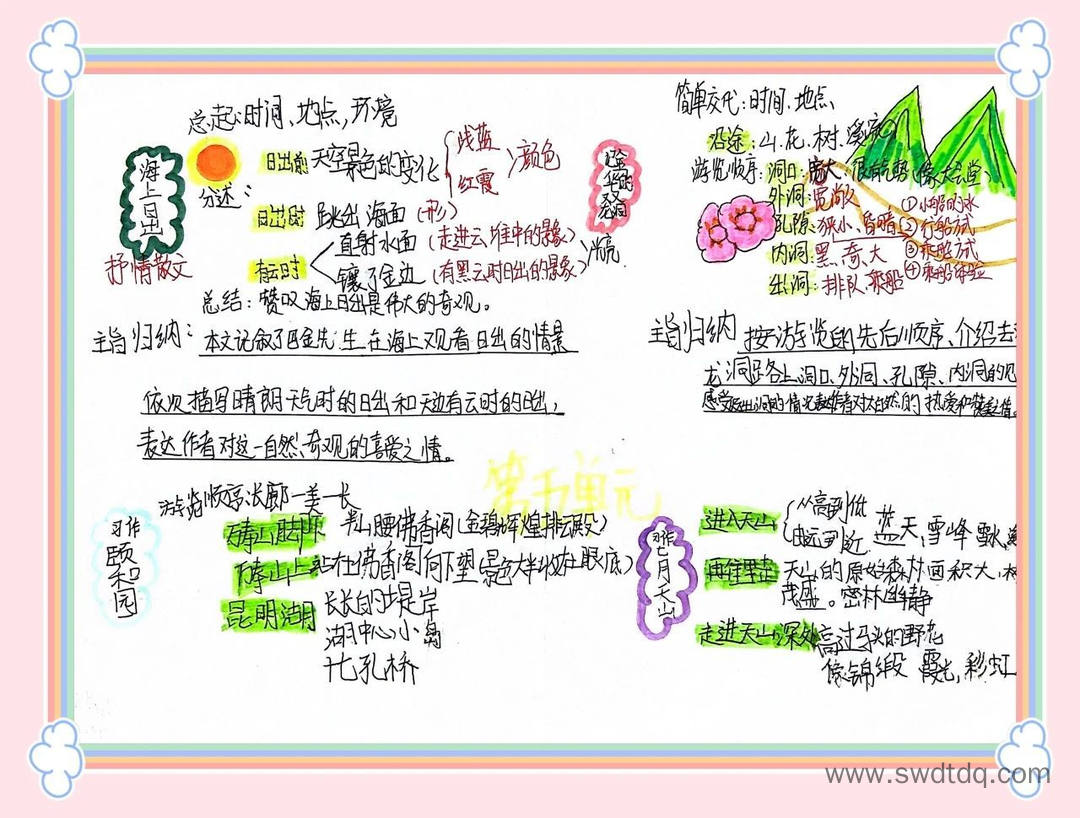 海上日出
抒情散文
总起:时间、地点,环境
分述:
日出前 天空景色的变化 浅蓝 红霞 颜色
日出时 跳出海面(形)
有云时 直射水面(走进云堆中的景象)
镶了金边(有黑云时日出的景象)
总结:赞叹海上日出是伟大的奇观。
主旨归纳:本文记叙了巴金先生在海上观看日出的情景
依次描写晴朗天气时的日出和天边有云时的日出,
表达作者对这一自然奇观的喜爱之情。
简单交代:时间、地点
沿途:山、花、树、溪流
游览顺序:洞口:宽大
外洞:宽敞
孔隙:狭小、昏暗
内洞:黑、奇、大
出洞:排队、乘船
①小船的水
②行船方式
③乘船方式
④乘船体验
主旨归纳 按游览的先后顺序、介绍去
龙洞路上、洞口、外洞、孔隙、内洞的见
第五单元
习作
颐和园
游览顺序:长廊—美—长
万寿山脚下 半山腰佛香阁(金碧辉煌排云殿)
万寿山上 站在佛香阁向下望(景色大半收在眼底)
昆明湖 长长的堤岸
湖中心小岛
十七孔桥
习作
七月天山
进入天山 从高到低
由远到近 蓝天,雪峰 雪水
再往里走 天山的原始森林面积大,
茂盛。密林幽静
走进天山深处 高过马头的野花
像锦缎 霞光,彩虹
www.swdtdq.com